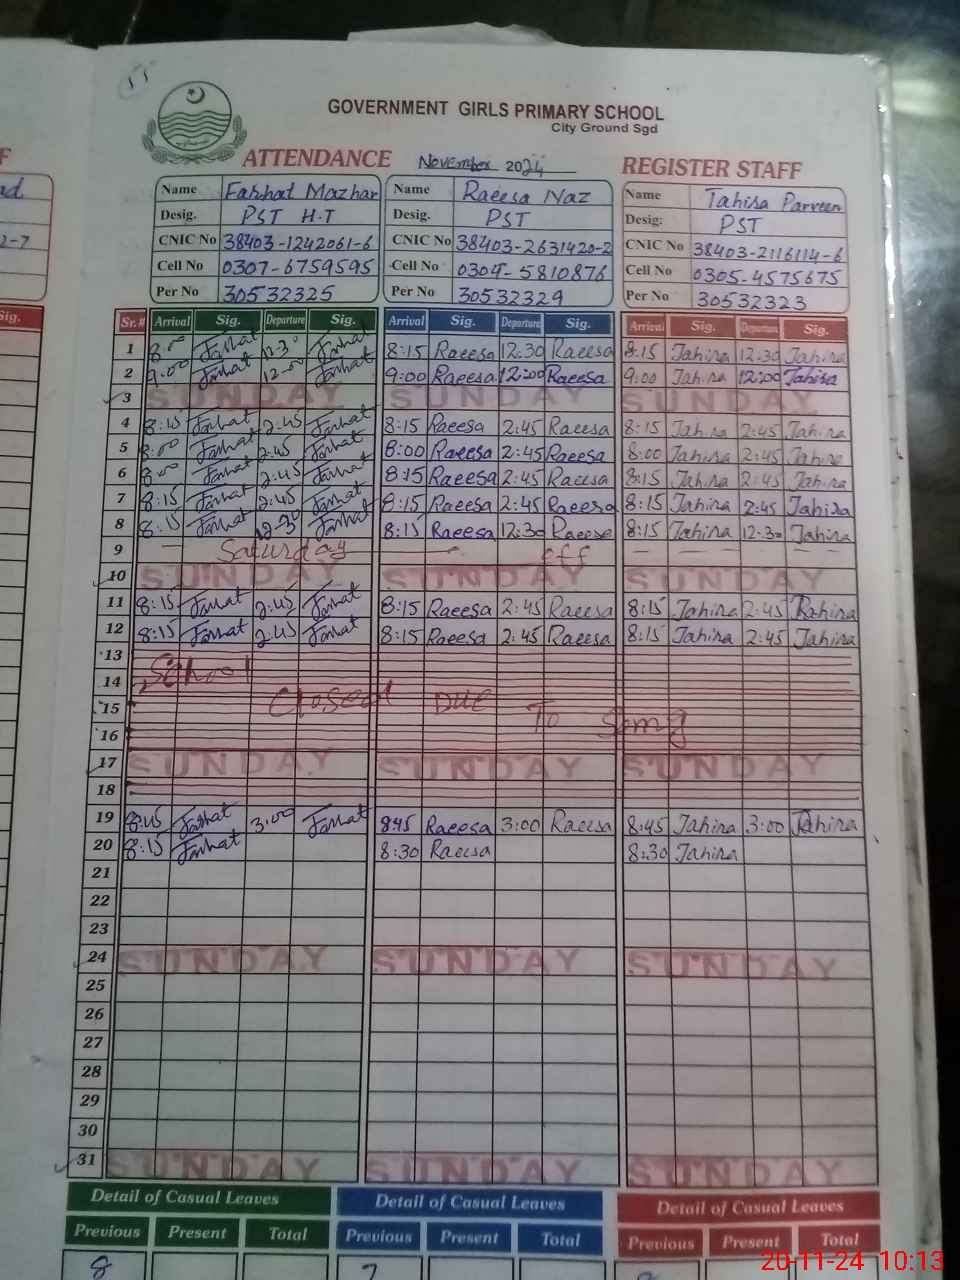 GOVERNMENT GIRLS PRIMARY SCHOOL
City Ground Sgd
ATTENDANCE November 2024 REGISTER STAFF
Name Farhat Mazhar Name Raeesa Naz Name Tahira Parveen
Desig. PST H.T Desig. PST Desig: PST
CNIC No 38403-1242061-6 CNIC No 38403-2631420-2 CNIC No 38403-2116114-6
Cell No 0307-6759595 Cell No 0304-5810876 Cell No 0305-4575675
Per No 30532325 Per No 30532329 Per No 30532323
Sig. Sr.# Arrival Sig. Departure Sig. Arrival Sig. Departure Sig. Arrival Sig. Departure Sig.
1 8:00 Farhat 12:30 Farhat 8:15 Raeesa 12:30 Raeesa 8:15 Tahira 12:30 Tahira
2 9:00 Farhat 12:00 Farhat 9:00 Raeesa 12:00 Raeesa 9:00 Tahira 12:00 Tahira
3 SUNDAY SUNDAY SUNDAY
4 8:15 Farhat 2:45 Farhat 8:15 Raeesa 2:45 Raeesa 8:15 Tahira 2:45 Tahira
5 8:00 Farhat 2:45 Farhat 8:00 Raeesa 2:45 Raeesa 8:00 Tahira 2:45 Tahira
6 8:00 Farhat 2:45 Farhat 8:15 Raeesa 2:45 Raeesa 8:15 Tahira 2:45 Tahira
7 8:15 Farhat 2:45 Farhat 8:15 Raeesa 2:45 Raeesa 8:15 Tahira 2:45 Tahira
8 8:15 Farhat 12:30 Farhat 8:15 Raeesa 12:30 Raeese 8:15 Tahira 12:30 Tahira
9 Saturday off
10 SUNDAY SUNDAY SUNDAY
11 8:15 Farhat 2:45 Farhat 8:15 Raeesa 2:45 Raeesa 8:15 Tahira 2:45 Rahira
12 8:15 Farhat 2:45 Farhat 8:15 Raeesa 2:45 Raeesa 8:15 Tahira 2:45 Tahira
13
14 School
15 Closed Due To Somg
16
17 SUNDAY SUNDAY SUNDAY
18
19 8:45 Farhat 3:00 Farhat 845 Raeesa 3:00 Raeesa 8:45 Tahira 3:00 Tahira
20 8:15 Farhat 8:30 Raeesa 8:30 Tahira
21
22
23
24 SUNDAY SUNDAY SUNDAY
25
26
27
28
29
30
31 SUNDAY SUNDAY SUNDAY
Detail of Casual Leaves Detail of Casual Leaves Detail of Casual Leaves
Previous Present Total Previous Present Total Previous Present Total
8 7
20-11-24 10:13